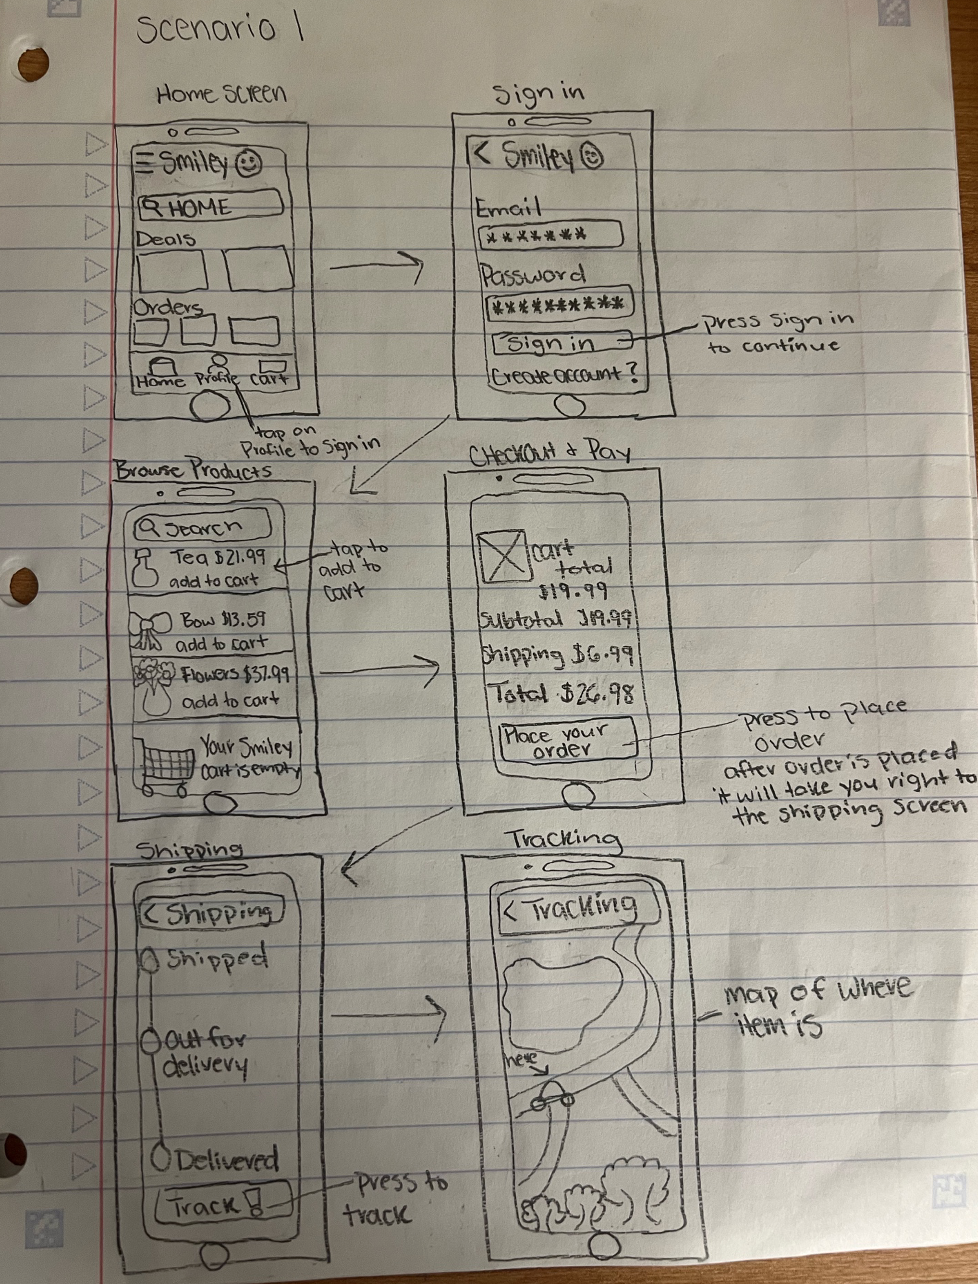 Scenario 1
Home Screen
Smiley
HOME
Deals
Orders
Home Profile Cart
tap on
Profile to Sign in
Sign in
< Smiley
Email
*******
Password
**********
Sign in
Create account?
press sign in
to continue
Browse Products
Search
Tea $21.99
add to cart
Bow $13.59
add to cart
Flowers $37.99
add to cart
Your Smiley
cart is empty
tap to
add to
cart
Checkout & Pay
cart
total
$19.99
Subtotal $19.99
Shipping $6.99
Total $26.98
Place your
order
press to place
order
after order is placed
it will take you right to
the shipping screen
Shipping
< Shipping
Shipped
Out for
delivery
Delivered
Track
press to
track
Tracking
< Tracking
here
map of where
item is